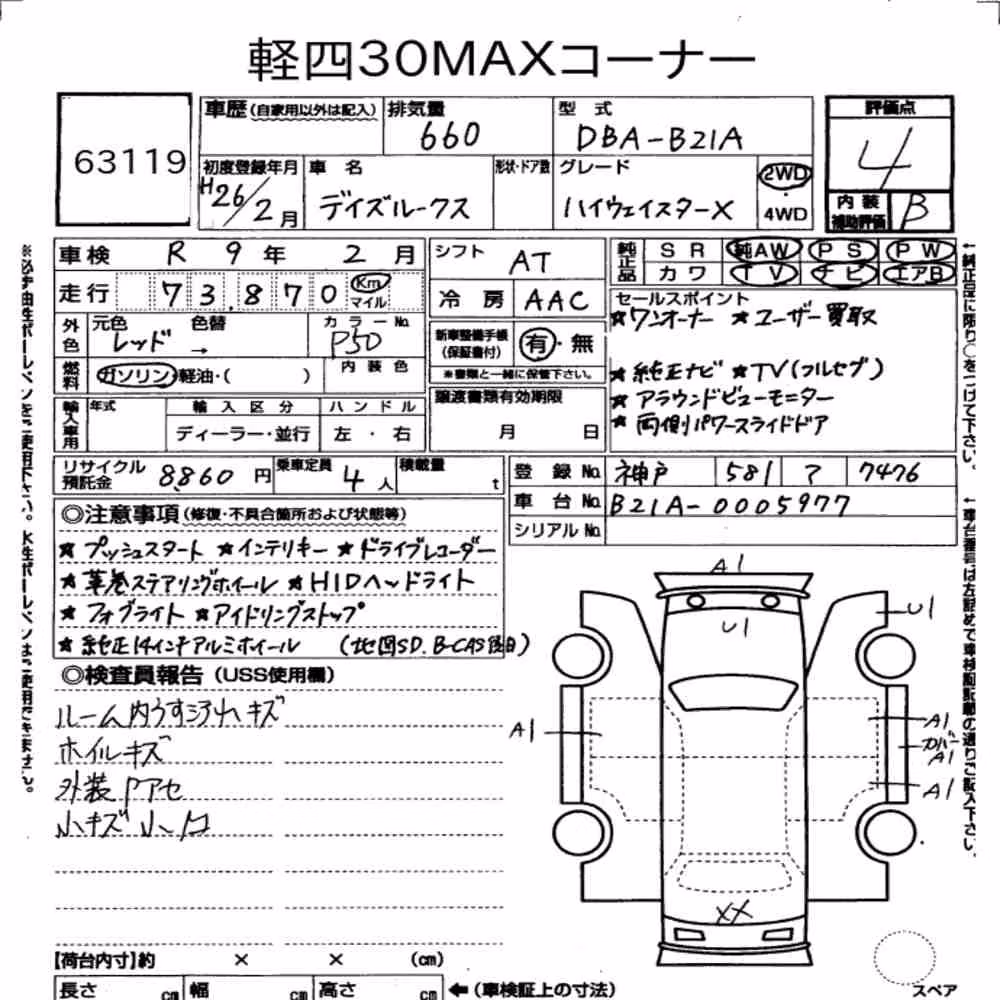 軽四30MAXコーナー
63119
車歴(自家用以外は記入)
排気量
660
型式
DBA-B21A
評価点
4
初度登録年月
H26/2月
車名
デイズルークス
形状・ドア数
グレード
ハイウェイスターX
2WD
・
4WD
内装
補助評価
B
車検 R 9年 2月
走行 73,870 Km
マイル
外色
元色 色替
レッド →
カラーNo.
P50
燃料
ガソリン・軽油・( )
内装色
輸入車用
年式
輸入区分
ディーラー・並行
ハンドル
左・右
シフト AT
冷房 AAC
新車整備手帳
(保証書付)
有・無
※書類と一緒に保管下さい。
譲渡書類有効期限
月 日
純正品
SR 純AW PS PW
カワ TV ナビ エアB
セールスポイント
★ワンオーナー ★ユーザー買取
★純正ナビ ★TV(フルセグ)
★アラウンドビューモニター
★両側パワースライドドア
リサイクル
預託金
8,860円
乗車定員
4人
積載量
t
登録No. 神戸 581 ア 7476
車台No. B21A-0005977
シリアルNo.
◎注意事項(修復・不具合箇所および状態等)
★プッシュスタート ★インテリキー ★ドライブレコーダー
★革巻ステアリングホイール ★HIDヘッドライト
★フォグライト ★アイドリングストップ
★純正14インチアルミホイール (地図SD.B-CAS後日)
◎検査員報告(USS使用欄)
ルーム内うすヨゴレキズ
ホイルキズ
外装Pアセ
小キズ小凹
A1
U1
U1
A1
A1
カバー
A1
A1
XX
【荷台内寸】約 × × (cm)
長さ cm 幅 cm 高さ cm
←(車検証上の寸法)
スペア
※必ず油性ボールペンをご使用下さい。水性ボールペンはご使用できません。
←純正品に限り○をつけて下さい。
←車台番号は左詰めで車検証記載の通りご記入下さい。